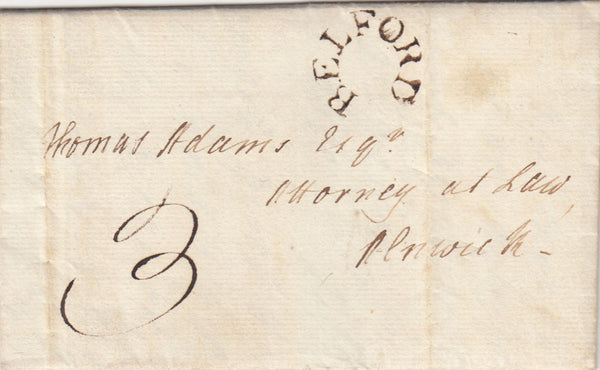 BELFORD
Thomas Adams Esqr.
Attorney at Law,
Alnwick -
3